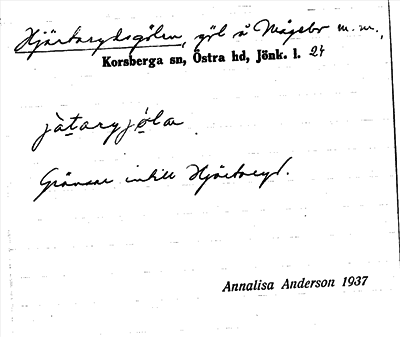 Hjärtarydsgölen, göl å Mågebo m.m.,
Korsberga sn, Östra hd, Jönk. l. 24
jä̀taryjǫ́lan
Gränsar intill Hjärtaryd.
Annalisa Anderson 1937